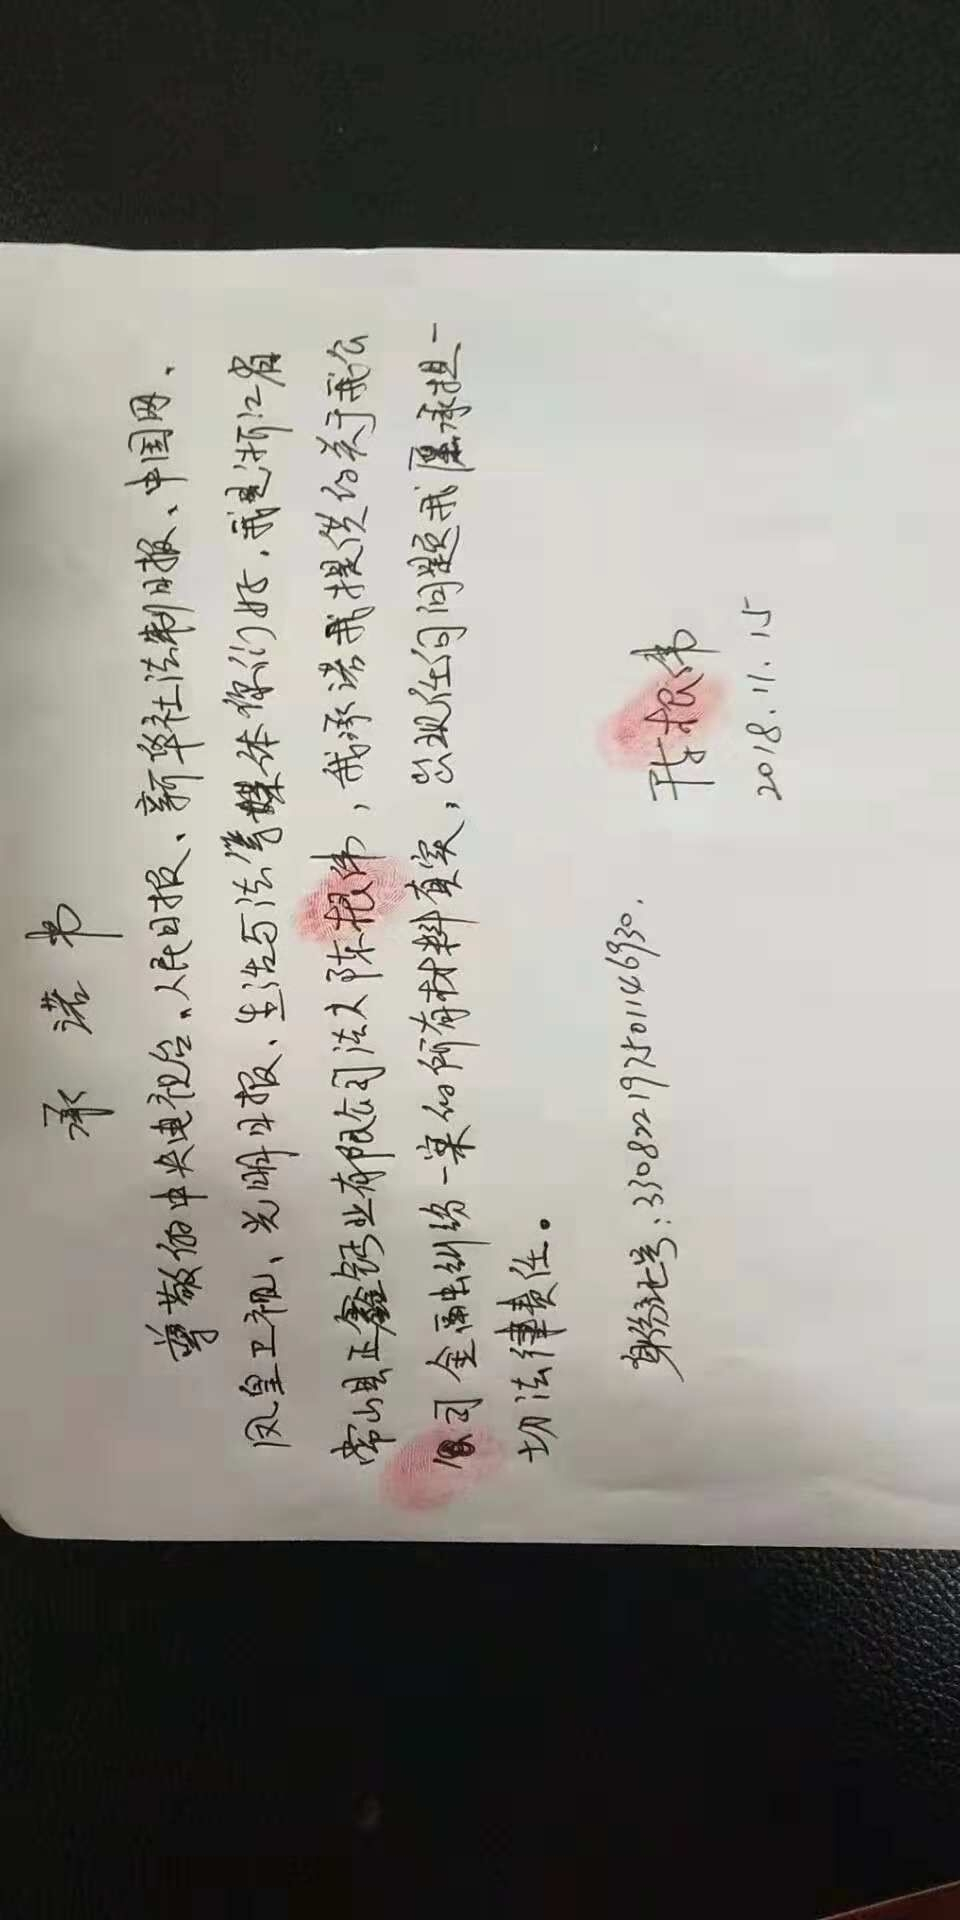 承诺书
尊敬的中央电视台、人民日报、新华社法制日报、中国网、
凤皇卫视、光明日报、生活与法等媒体你们好,我是浙江省
常山县正鑫钙业有限公司法人陈根伟,我承诺我提供的关于我公
司金融纠纷一案的所有材料真实,出现任何问题我愿承担一
切法律责任。
陈根伟
身份证号:330822197501146930.
2018.11.15